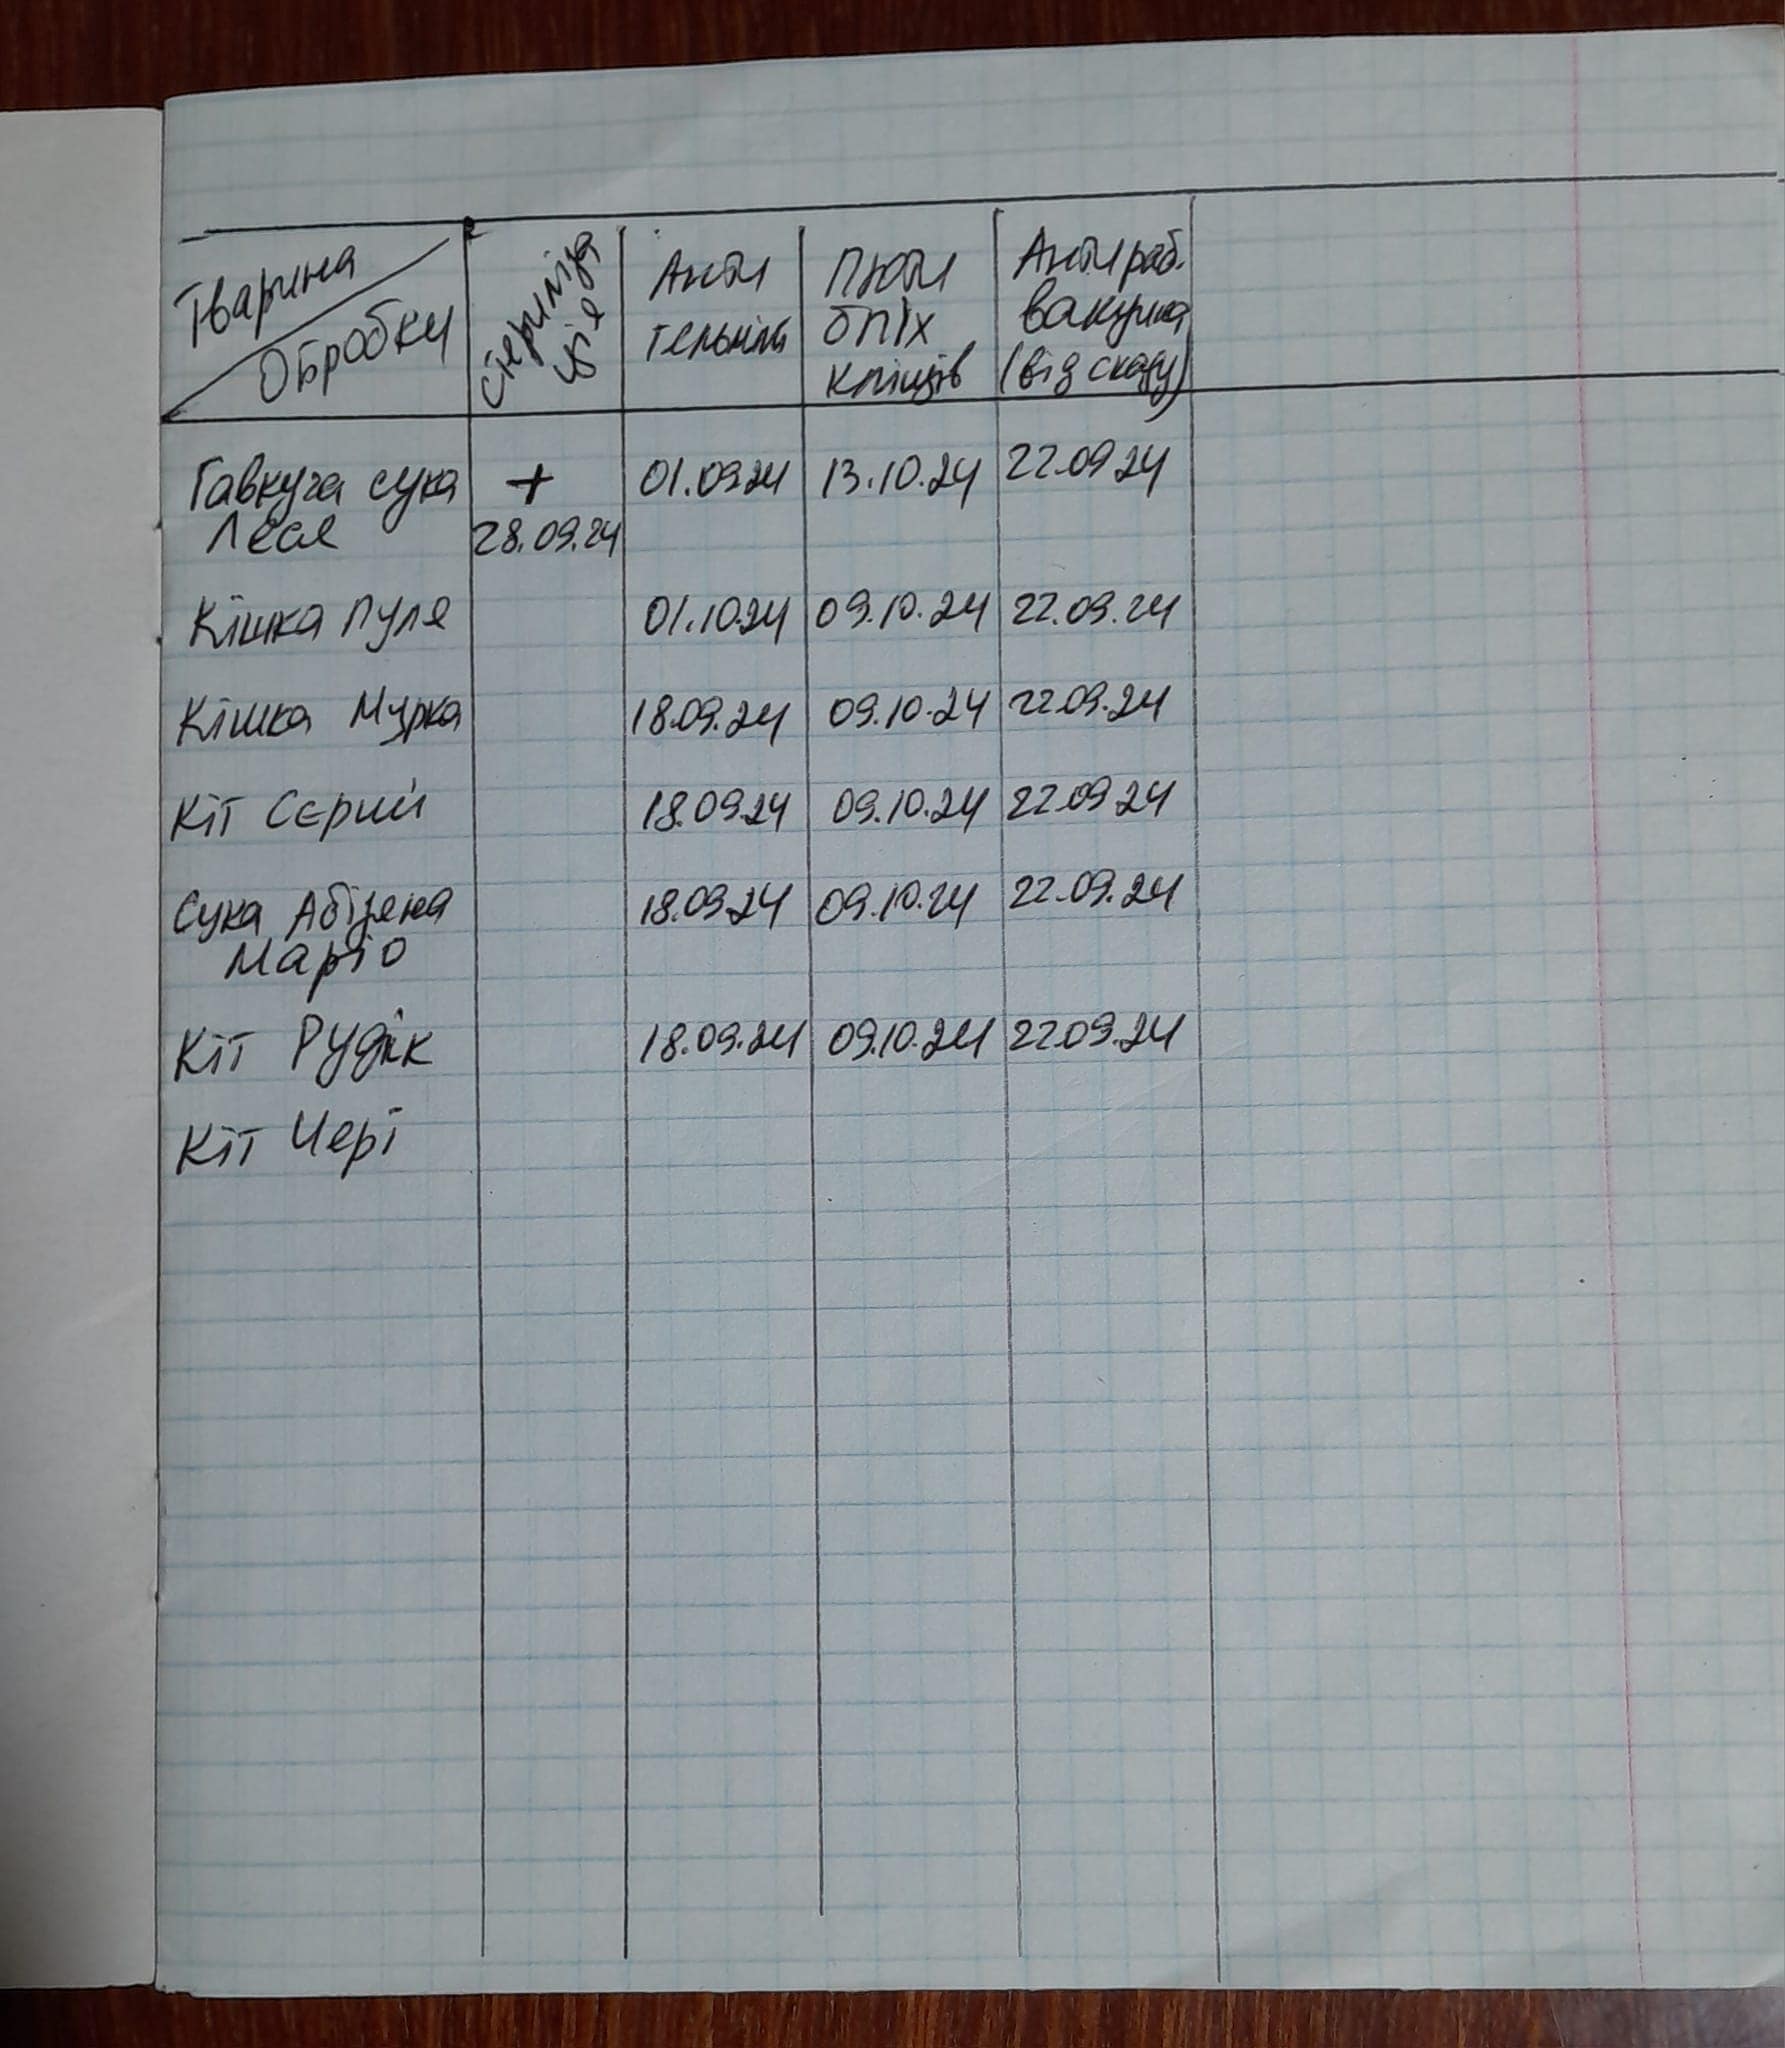 Тварина
Обробки
стериліза
ція
Анти
гельмінт
Проти
бліх
кліщів
Антираб.
вакцина
(від сказу)
Гавкуча сука + 01.09.24 13.10.24 22.09.24
Леся 28.09.24
Кішка Пуля 01.10.24 09.10.24 22.09.24
Кішка Мурка 18.09.24 09.10.24 22.09.24
Кіт Сєрий 18.09.24 09.10.24 22.09.24
Сука Абізяна 18.09.24 09.10.24 22.09.24
Маріо
Кіт Рудік 18.09.24 09.10.24 22.09.24
Кіт Чері